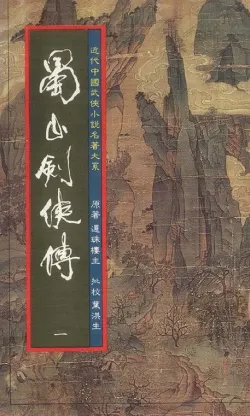 近代中國武俠小說名著大系
原著 還珠樓主 批校 葉洪生
蜀山劍俠傳
一